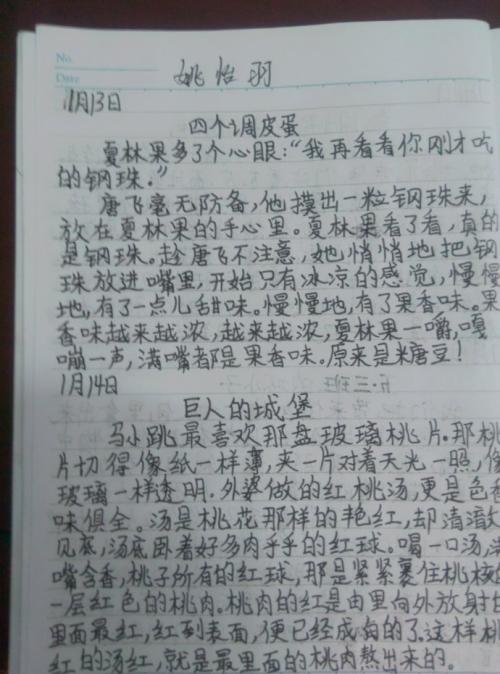 No.
Date
姚怡羽
11月13日
四个调皮蛋
夏林果多了个心眼：“我再看看你刚才吃
的钢珠。”
唐飞毫无防备，他摸出一粒钢珠来，
放在夏林果的手心里。夏林果看了看，真的
是钢珠。趁唐飞不注意，她悄悄地把钢
珠放进嘴里，开始只有冰凉的感觉，慢慢
地，有了一点儿甜味。慢慢地，有了果香味。果
香味越来越浓，越来越浓，夏林果一嚼，嘎
嘣一声，满嘴都是果香味。原来是米唐豆！
1月14日
巨人的城堡
马小跳最喜欢那盘玻璃桃片。那桃
片切得像纸一样薄，夹一片对着天光一照，像
玻璃一样透明。外婆做的红桃汤，更是色香
味俱全。汤是桃花那样的艳红，却清澈
见底，汤底卧着好多肉乎乎的红球。喝一口汤，
嘴含香，桃子所有的红球，那是紧紧裹住桃核的
一层红色的桃肉。桃肉的红是由里向外放射
里面最红，红到表面，便已经成白的了。这样桃
红的汤红，就是最里面的桃肉熬出来的。